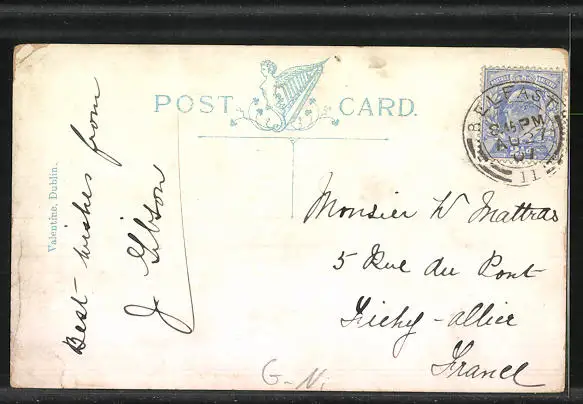 POST CARD.
Valentine, Dublin.
Best wishes from
J Gibson
BELFAST
8.45 PM
AU 27
07
11
Monsier W Mattras
5 Rue du Pont
Vichy - allier
France
G-N.